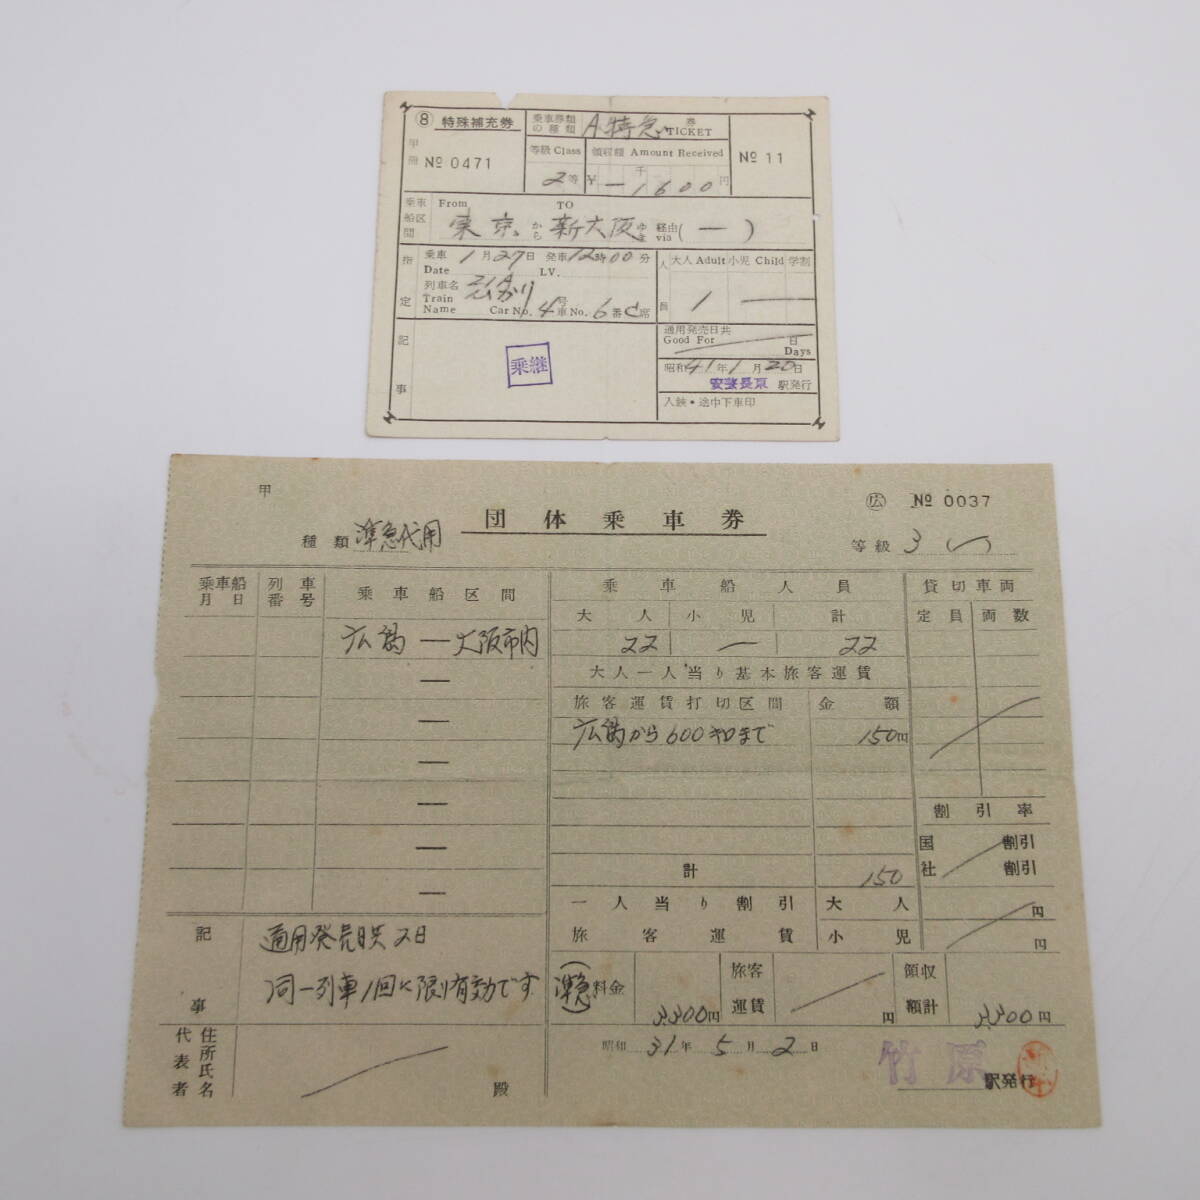 ⑧ 特殊補充券
甲
冊 № 0471
乗車券類の種類 A特急 券 TICKET
等級 Class 2等
領収額 Amount Received
千
¥ー1600円
№ 11
乗車船区間 From 東京 から TO 新大阪 ゆき 経由 via (ー)
指定
乗車 Date 1月27日 発車 LV. 12時00分
列車名 Train Name ひかり 号
Car No. 4車 No. 6番C席
人員 大人 Adult 小児 Child 学割
1 ー
通用発売日共 Good For 日 Days
記事
乗継
昭和41年1月20日
安芸長束 駅発行
入鋏・途中下車印
甲
団体乗車券
広 № 0037
種類 準急代用
等級 3
乗車船月日
列車番号
乗車船区間
乗車船人員
貸切車両
大人 小児 計
定員 両数
広島 ー 大阪市内
22 ー 22
大人一人当り基本旅客運賃
旅客運賃打切区間 金額
広島から600キロまで 150円
割引率
国 割引
社 割引
計 150
一人当り割引旅客運賃
大人 円
小児 円
記事
通用発売日共2日
同一列車1回に限り有効です
(準急)料金 3,300円
旅客運賃 円
領収額計 3,300円
代表者 住所氏名 殿
昭和31年5月2日
竹原 駅発行